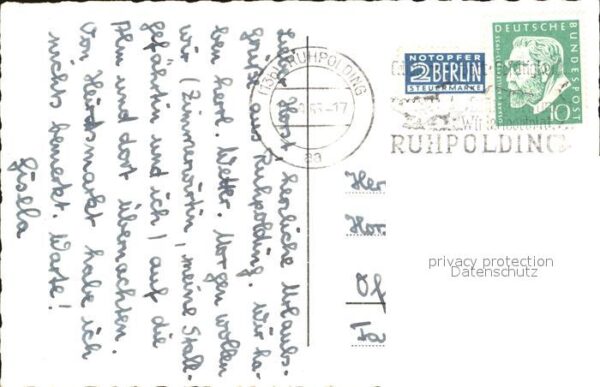 Lieber Horst! herzliche Urlaubs-
grüße aus Ruhpolding. Wir ha-
ben herrl. Wetter. Morgen wollen
wir (Zimmerwirtin, meine Stall-
gefährtin und ich) auf die
Alm und dort übernachten.
Von Heiratsmarkt habe ich
nichts bemerkt. Warte!
Gisela
(13b) RUHPOLDING
-17
aa
NOTOPFER
2 BERLIN
STEUERMARKE
DEUTSCHE BUNDESPOST
1855-1955
10
RUHPOLDING
Her
Hor
Of
privacy protection
Datenschutz